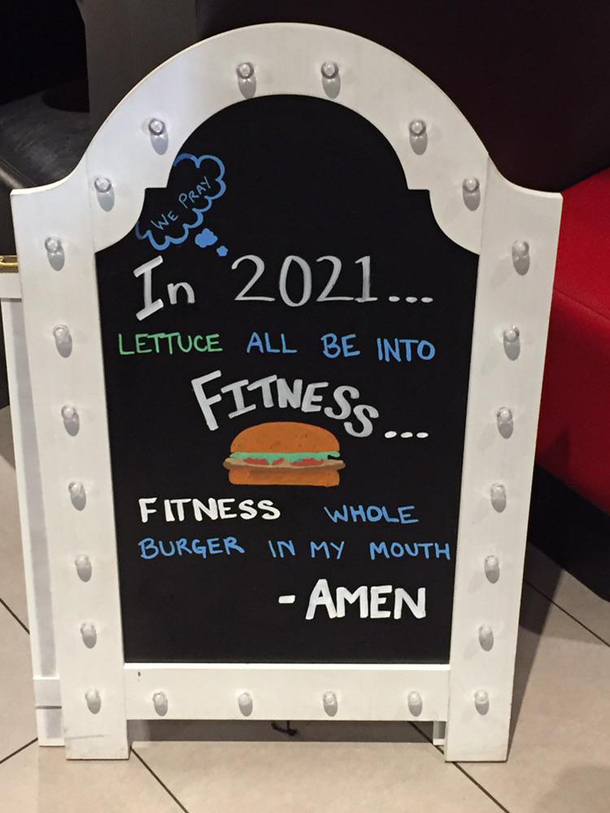 WE PRAY
In 2021...
LETTUCE ALL BE INTO
FITNESS...
FITNESS WHOLE
BURGER IN MY MOUTH
- AMEN